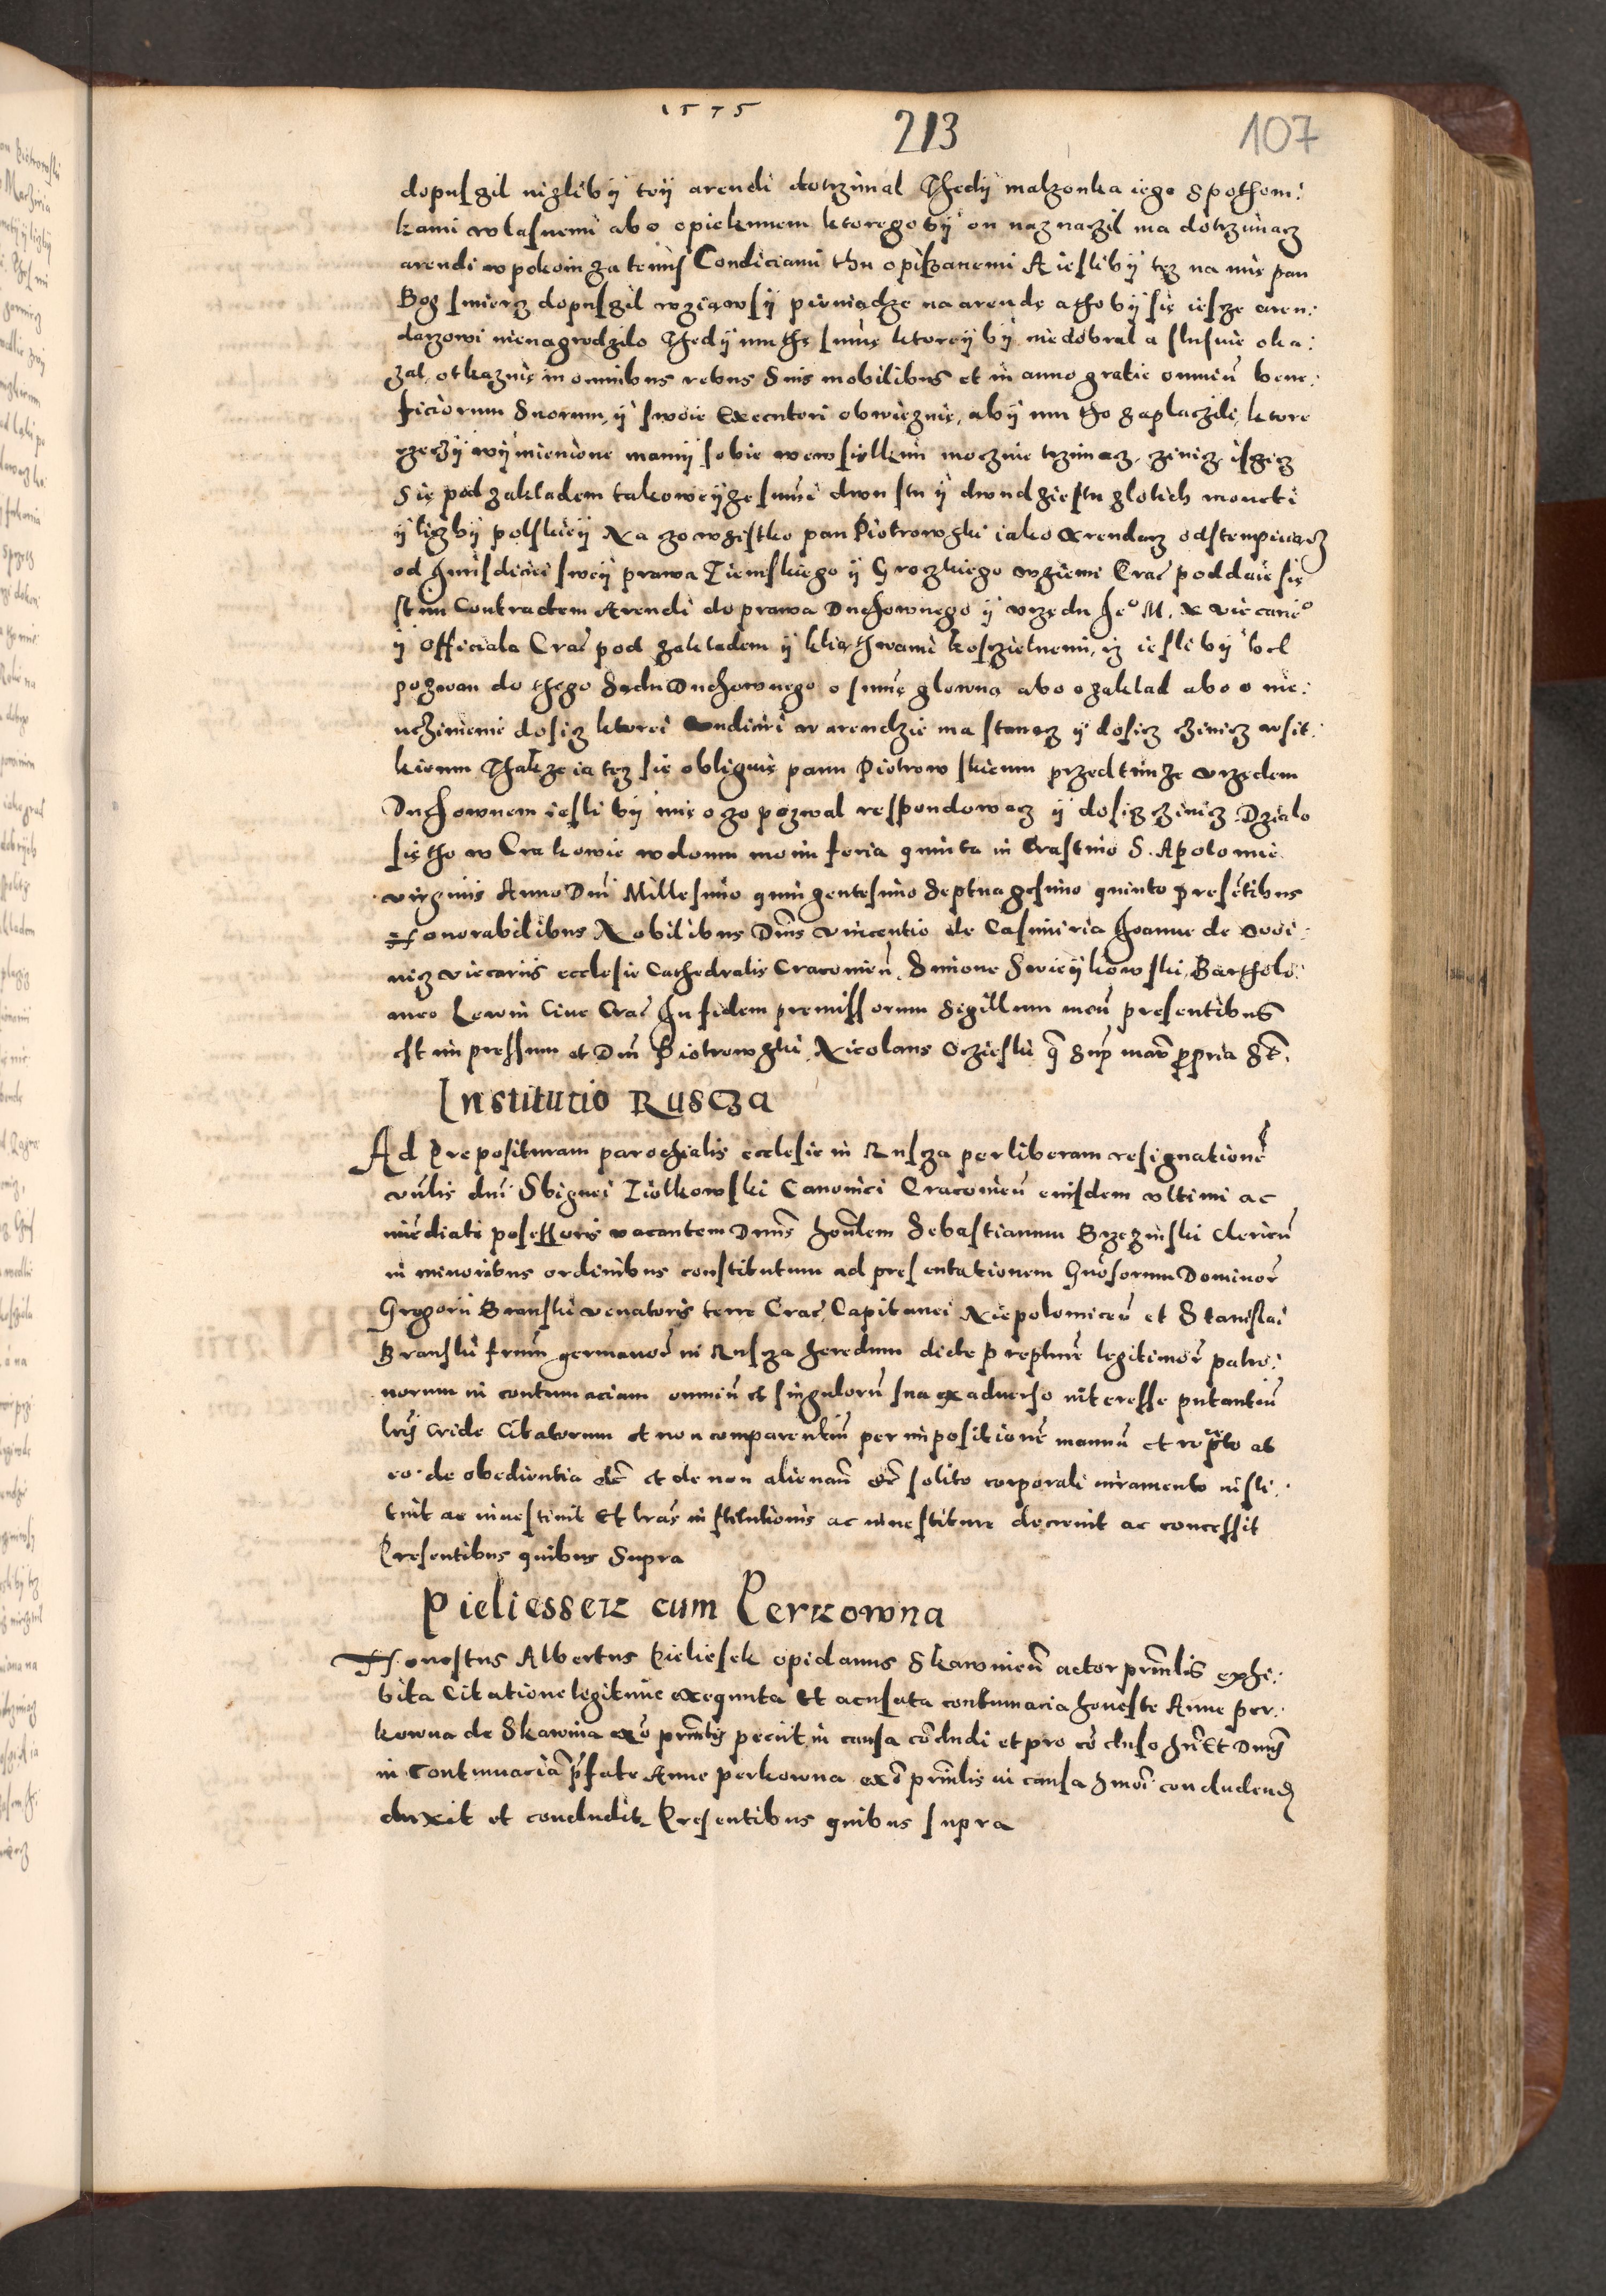 1575
213 107
dopusżil niżliby tey arendi dotrzimal Thedy malzonka iego s pothom:
kami wlasnemi abo opiekunem ktoregoby on naznaczil ma dotrzimacz
arendi w pokoiu za temis Condiciami thu opisanemi A iesliby tez na mię pan
Bog smiercz dopusżil wziąwsy pieniądze na arendę a thoby się iesze aren:
darzowi nienagrodzilo Thedy mu thę sumę ktoreyby niedobral a slusnie oka:
zal, otkazuię in omnibus rebus suis mobilibus et in anno gratie omniu bene:
ficiorum suorum, y swoie Executori obwięzuię, aby mu tho zaplaczili, ktore
rzeczy wymienione mamy sobie wewsystkim mocznie trzimacz, ziniczy, isczicz
Się pod zakladem takoweyze sumi dwu stu y dwudziestu zlotich moneti
y liczby polskiey Na czo wszistko pan Piotrowski iako Arendarz odstempuiącz
od Jurisdiciei swey prawa Ziemskiego y Grozkiego wziemi Crac poddaie się
stim Contractem Arendi do prawa Duchownego y urzędu Je° M. x vicarie°
y Officiala Crac pod zakladem y klięthwami kosczielnemi, iz iesliby bel
pozwan do thego Sądu Duchownego o sumę glowną abo o zaklad abo o nie:
uczinienie dosicz ktorei Condiciei w arendzie ma stanącz y dosicz czinicz wsit:
kiemu Thakze ia tez się obliguię panu Piotrowskiemu przed timze urzędem
Duchownem iesliby mię o czo pozwal respondowacz y dosicz czinicz. Dzialo
się tho w Crakowie w domu moim feria quinta in Crastino S. Apolonie
virginis Anno Dni Millesimo quingentesimo septuagesimo quinto presetibus
Honorabilibus Nobilibus Dnis Vincentio de Casimiria Joanne de Voi:
nicz vicariis ecclesie Cathedralis Cracovien. Simone Swieykowski, Bartholo:
meo Lewin Cive Crac In fidem premissorum Sigillum meu presentibus
est impressum et Dni Piotrowski, Nicolaus Oczieski q̄ Sup manu ppria Sst.
Institutio Rusza
Ad Preposituram parochialis ecclesie in Rusza per liberam resignatione
vnlis dni Sbignei Ziolkowski Canonici Cracovien eiusdem ultimi ac
imediati possessoris vacantem Dnus honlem Sebastianum Brzezinski Clericu
in minoribus ordinibus constitutum ad presentationem Gnosorum Dominor
Gregorii Branski venatoris terre Crac Capitanei Niepolomicen et Stanislai
Branski frum germanor in Rusza heredum dicte prepture legitimor patro:
norum in contumaciam omniu et singuloru sua ex adverso interesse putantiu
lris Cride Citatorum et non comparentiu per impositione mannu et recepto ab
eo de obedientia etc et de non alienan etc solito corporali iuramento insti:
tuit ac investivit Et lras institutionis ac investiture decrevit ac concessit
Presentibus quibus Supra
Pieliessek cum Perkowna
Honestus Albertus Pieliesek opidanus Skawinen actor prinlis exhi:
bita Citatione legitime exequuta Et acusata contumacia honeste Anne Per:
kowna de Skawina exo prinlis peciit in causa cocludi et pro cocluso hri Et Dnus
in Contumacia pfate Anne Perkowna exo prinlis in causa hmoi concludend
duxit et concludit. Presentibus quibus supra